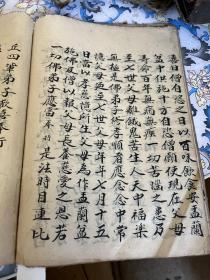 喜日僧自恣之日以百味飲食安盂蘭
盆中供施十方自恣僧願使現在父母
壽命百年無病無一切苦惱之患乃
至七世父母離餓鬼苦生人天中福樂
無極是佛弟子修孝順者應念念中常
憶父母乃至七世父母年年七月十五
日當以孝慈憶所生父母為作盂蘭盆
施佛及僧以報父母長養慈愛之恩若
一切佛弟子應當奉行是法時目連比
丘四輩弟子歡喜奉行